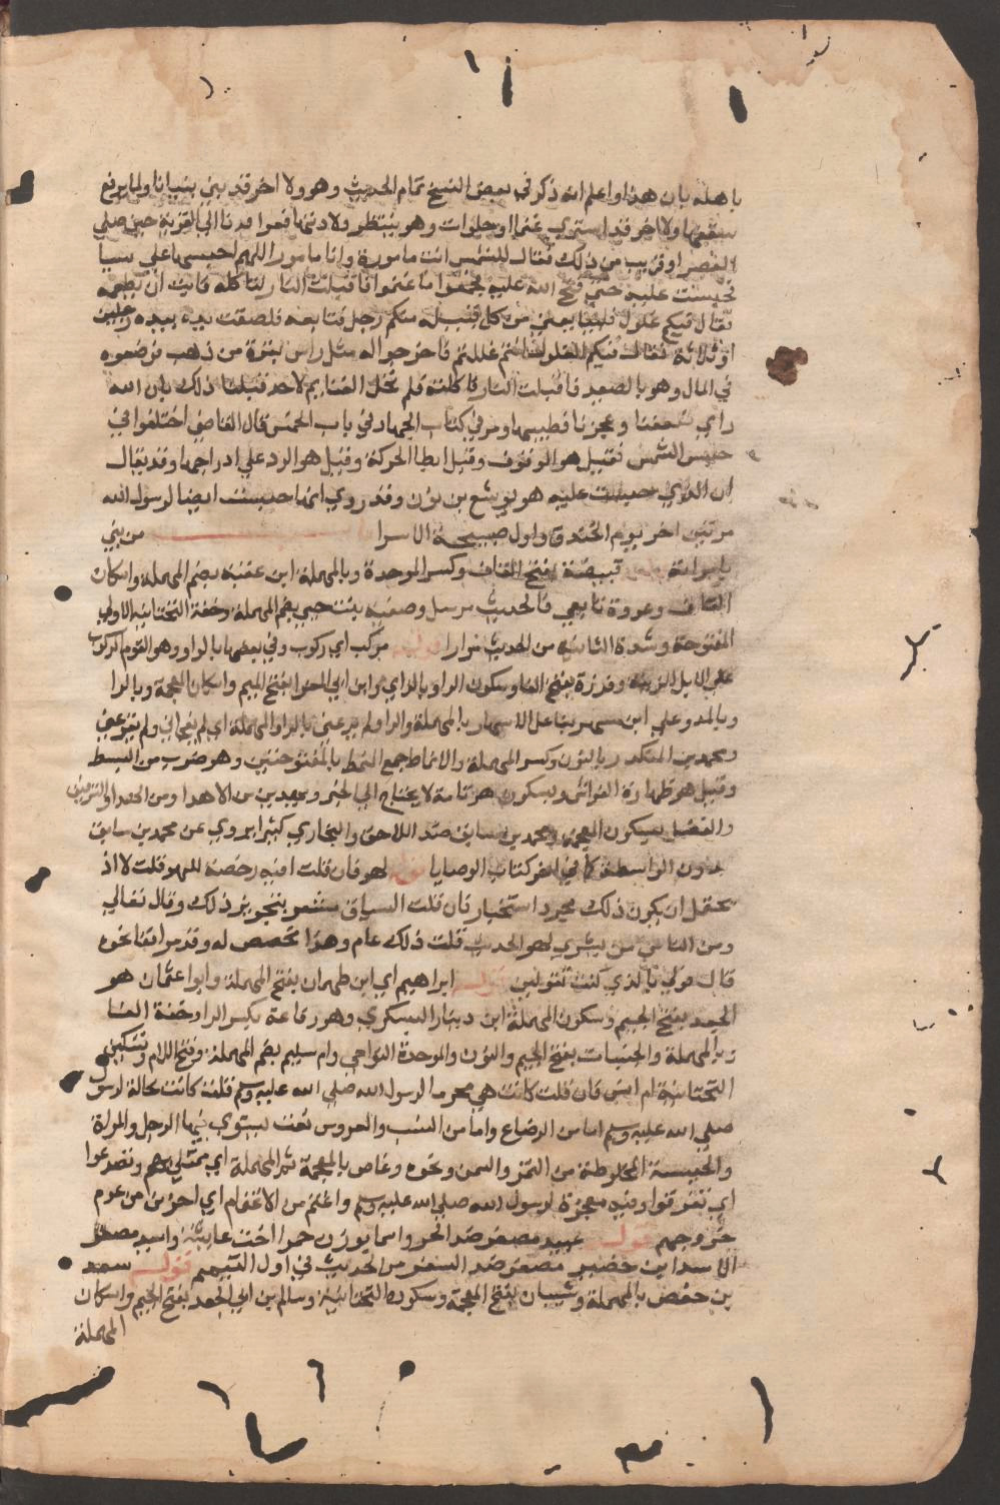 باهله بان هذا واعلم انه ذكر في بعض النسخ تمام الحديث وهو ولا اخر قد بني بنيانا ولما يرفع
سقفها ولا اخر قد اشتري غنما او خلفات وهو ينتظر ولادتها فغزا فدنا الي القرية حين صلي
العصر او قريب من ذلك فقال للشمس انت مامورة وانا مامور اللهم احبسها علي شيا
فحبست عليه حتي فتح الله عليه فجمعوا ما غنموا فاقبلت النار لتاكله فابت ان تطعمه
فقال فيكم غلول فليبايعني من كل قبيلة منكم رجل فبايعه فلصقت يده بيده رجلين
او ثلاثة فقال فيكم الغلول انتم غللتم فاخرجوا له مثل راس بقرة من ذهب فوضعوه
في المال وهو بالصعيد فاقبلت النار فاكلته فلم تحل الغنايم لاحد قبلنا ذلك بان الله
راي ضعفنا وعجزنا فطيبها ومر في كتاب الجهاد في باب الخمس قال القاضي اختلفوا في
حبس الشمس فقيل هو الوقوف وقيل ابطا الحركة وقيل هو الرد علي ادراجها وقد يقال
ان الذي حبست عليه هو يوشع بن نون وقد روي انها حبست ايضا لرسول الله
مرتين اخر يوم الخندق واول صبيحة الاسرا من بني
بامراته قبيصة بفتح القاف وكسر الموحدة وبالمهملة ابن عقبة بضم المهملة واسكان
القاف وعروة تابعي فالحديث مرسل وصفية بنت حيي بضم المهملة وخفة التحتانية الاولي
المفتوحة وشدة الثانية من الحديث مرارا قوله مركب اي ركوب وفي بعضها بالواو وهو القوم الركوب
علي الابل الزينة وفروة بفتح الفا وسكون الرا وبالواو ابن ابي المغرا بفتح الميم واسكان المعجمة وبالرا
وبالمد وعلي ابن مسهر بفاعل الاسهار بالمهملة والرا ولم يرعني بالرا والمهملة اي لم يفجاني ولم يفزعني
ومحمد بن المنكدر بالنون وكسر المهملة والانماط جمع النمط بالمفتوحتين وهو ضرب من البسط
وقيل هو ظهارة الفراش ويكون هو تامة لا يحتاج الي الخبر ويهدين من الاهدا ومن الهدا والتزيين
والفضل بسكون المعجمة ومحمد بن سابق ضد اللاحق والبخاري كثيرا يروي عن محمد بن سابق
بدون الواسطة كما في اخر كتاب الوصايا قوله لهو فان قلت افيه رخصة للهو قلت لا اذ
يحتمل ان يكون ذلك مجرد استخبار فان قلت السياق مشعر بتجويز ذلك وقال تعالي
ومن الناس من يشتري لهو الحديث قلت ذلك عام وهذا تخصص له وقد مر اننا نحوه
قال قولي بالذي كنت تقولين قوله ابراهيم اي ابن طهمان بفتح المهملة وابو عثمان هو
الجعد بفتح الجيم وسكون المهملة ابن دينار اليشكري وهو رفاعة بكسر الرا وخفة الفا
وبالمهملة والجنبات بفتح الجيم والنون والموحدة النواحي وام سليم بضم المهملة وفتح اللام وتسكين
التحتانية ام انس فان قلت كانت هي محرما لرسول الله صلي الله عليه وسلم قلت كانت خالة لرسول
صلي الله عليه وسلم اما من الرضاع واما من النسب والعروس نعت يستوي فيها الرجل والمراة
والحيسة المخلوطة من التمر والسمن ونحوه وغاص بالمعجمة ثم المهملة اي ممتلي بهم وتصدعوا
اي تفرقوا وفيه معجزة لرسول الله صلي الله عليه وسلم واغتم من الاغتمام اي احزن من عدم
خروجهم قوله عبيد مصغر ضد الحر واسما بوزن حمرا اخت عايشة واسيد مصغر
الاسد ابن حضير مصغر ضد السفر من الحديث في اول التيمم قوله سعد
بن حفص بالمهملة وشيبان بفتح المعجمة وسكون التحتانية وسالم بن ابي الجعد بفتح الجيم واسكان
المهملة